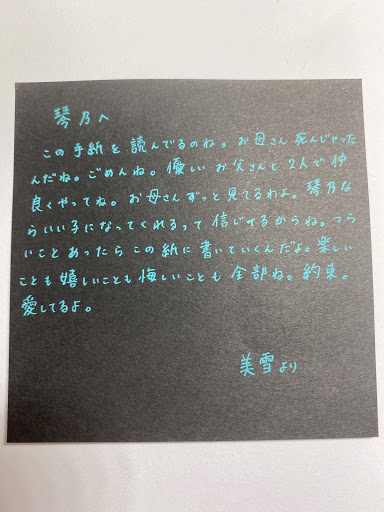 琴乃へ
この手紙を読んでるのね。お母さん死んじゃった
んだね。ごめんね。優しいお父さんと2人で仲
良くやってね。お母さんずっと見てるわよ。琴乃な
らいい子になってくれるって信じてるからね。つら
いことあったらこの紙に書いていくんだよ。楽しい
ことも嬉しいことも悔しいことも全部ね。約束。
愛してるよ。
美雪より